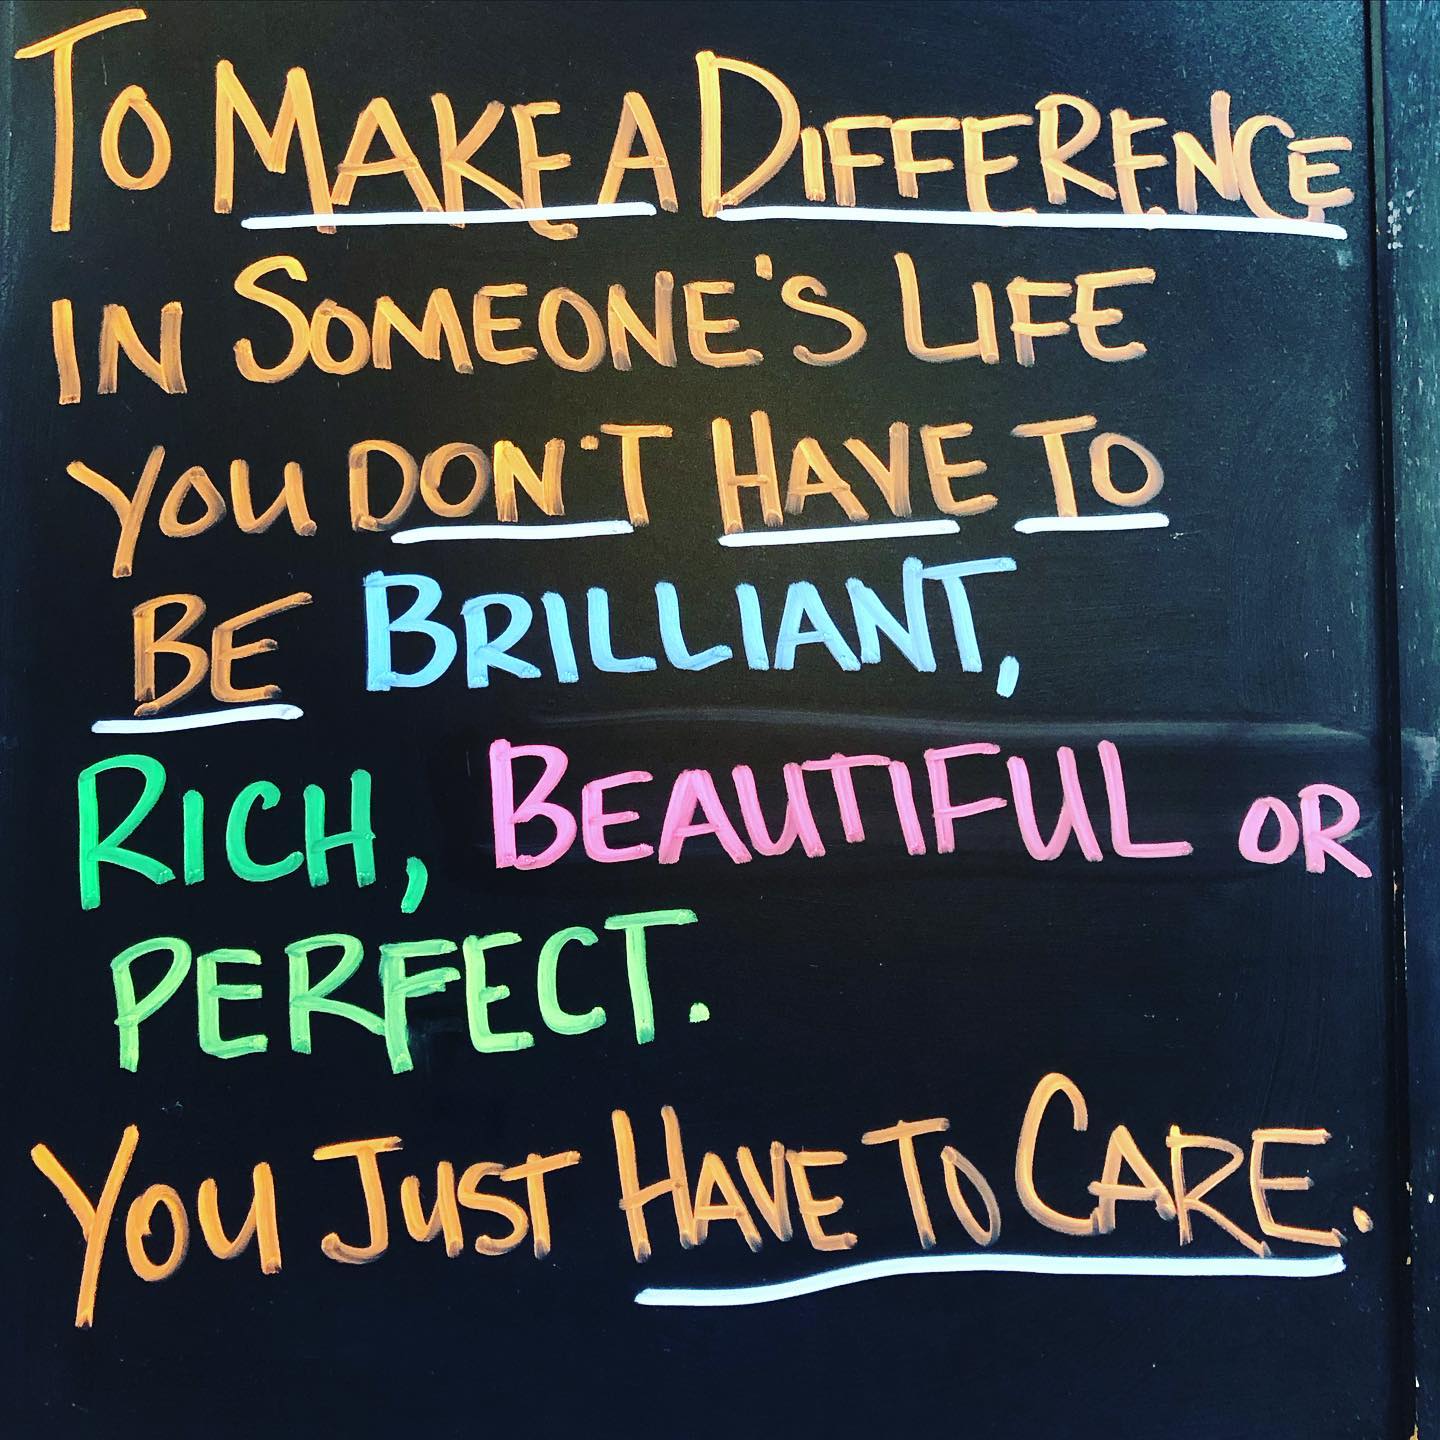 To MAKE A DIFFERENCE
IN SOMEONE'S LIFE
YOU DON'T HAVE TO
BE BRILLIANT,
RICH, BEAUTIFUL OR
PERFECT.
YOU JUST HAVE TO CARE.